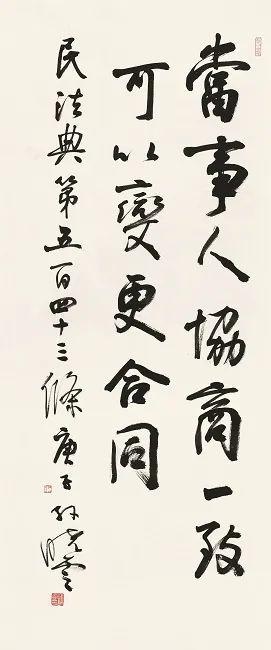 當事人協商一致
可以變更合同
民法典第五百四十三條 庚子 孫曉雲